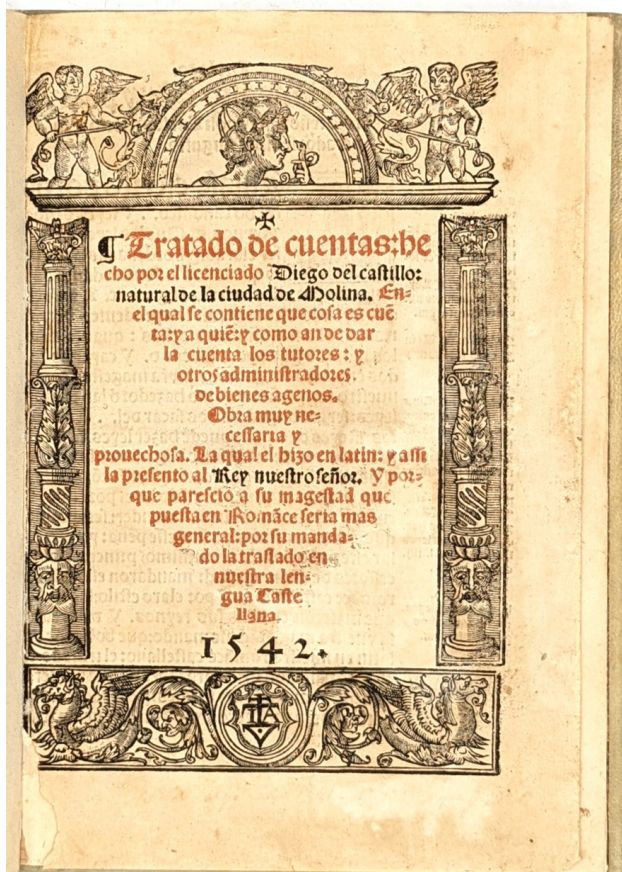 ✠
¶ Tratado de cuentas:he
cho por el licenciado Diego del castillo:
natural de la ciudad de Molina. En=
el qual se contiene que cosa es cuẽ
ta:y a quiẽ:y como an de dar
la cuenta los tutores: y
otros administradores
de bienes agenos.
Obra muy ne=
cessaria y
prouechosa. La qual el hizo en latin: y assi
la presento al Rey nuestro señor. Y por=
que parescio a su magestad que
puesta en Romãce seria mas
general:por su manda=
do la traslado en
nuestra len=
gua Caste
llana.
1542.